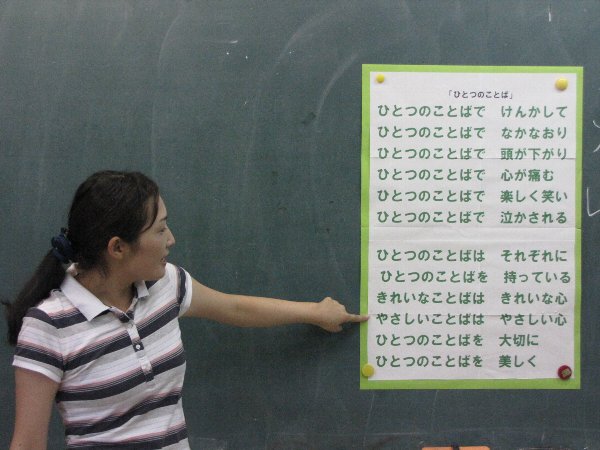 「ひとつのことば」
ひとつのことばで けんかして
ひとつのことばで なかなおり
ひとつのことばで 頭が下がり
ひとつのことばで 心が痛む
ひとつのことばで 楽しく笑い
ひとつのことばで 泣かされる
ひとつのことばは それぞれに
ひとつのことばを 持っている
きれいなことばは きれいな心
やさしいことばは やさしい心
ひとつのことばを 大切に
ひとつのことばを 美しく